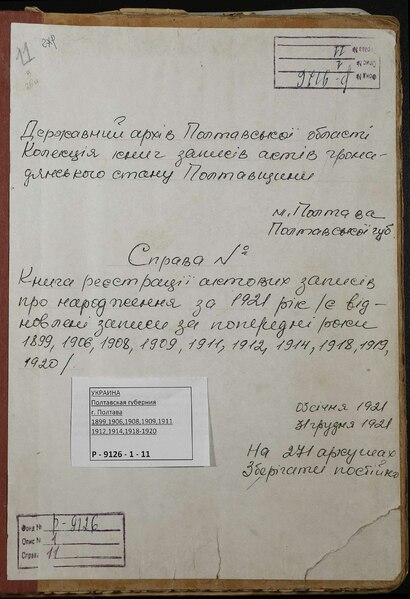 11
Фонд № р-9126
Опис № 1
Справа 11
Державний архів Полтавської області
Колекція книг записів актів грома-
дянського стану Полтавщини
м. Полтава
Полтавської губ.
Справа №
Книга реєстрації актових записів
про народження за 1921 рік /є від-
новлені записи за попередні роки
1899, 1906, 1908, 1909, 1911, 1912, 1914, 1918, 1919,
1920/
УКРАИНА
Полтавская губерния
г. Полтава
1899,1906,1908,1909,1911
1912,1914,1918-1920
Р - 9126 - 1 - 11
січня 1921
31 грудня 1921
На 271 аркушах
Зберігати постійно
Фонд № р-9126
Опис № 1
Справа 11